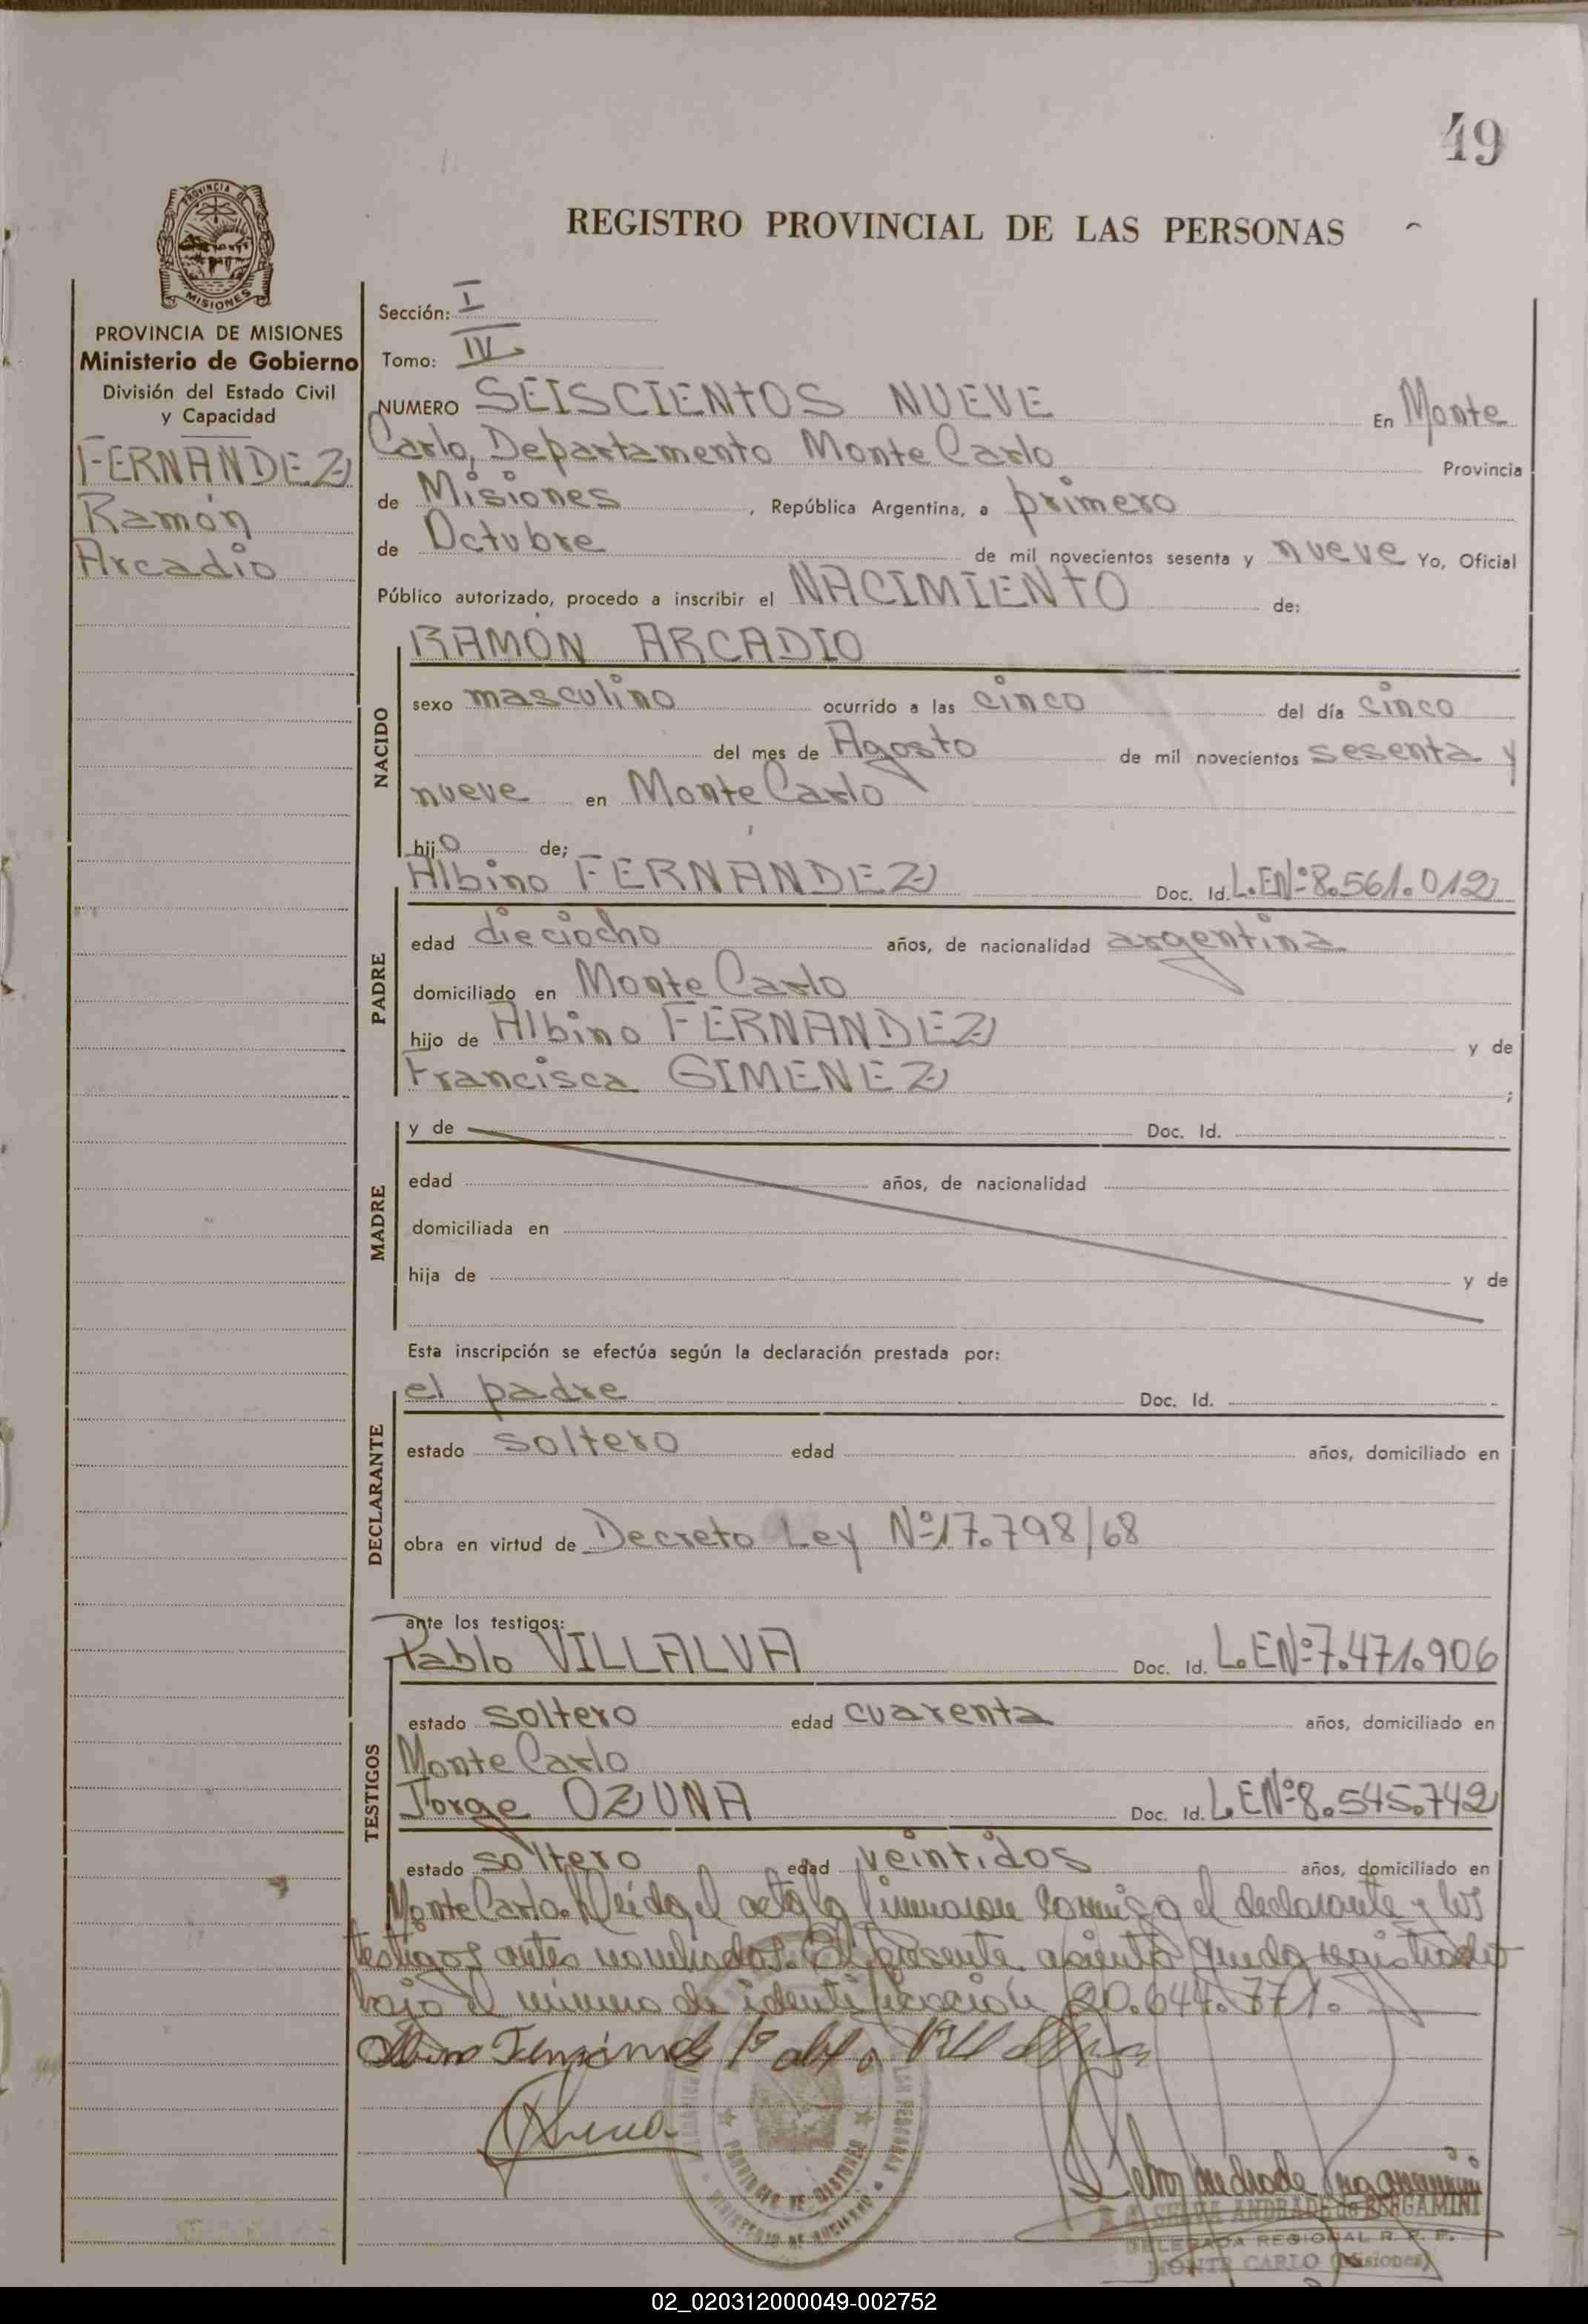 49
PROVINCIA DE
MISIONES
REGISTRO PROVINCIAL DE LAS PERSONAS
PROVINCIA DE MISIONES
Ministerio de Gobierno
División del Estado Civil
y Capacidad
FERNANDEZ
Ramón
Arcadio
Sección: I
Tomo: IV
NUMERO SEISCIENTOS NUEVE En Monte
Carlo, Departamento Monte Carlo Provincia
de Misiones, República Argentina, a primero
de Octubre de mil novecientos sesenta y nueve Yo, Oficial
Público autorizado, procedo a inscribir el NACIMIENTO de:
NACIDO
RAMÓN ARCADIO
sexo masculino ocurrido a las cinco del día cinco
del mes de Agosto de mil novecientos sesenta y
nueve en Monte Carlo
hijo de;
PADRE
Albino FERNANDEZ Doc. Id. L.E.Nº 8.561.012
edad dieciocho años, de nacionalidad argentina
domiciliado en Monte Carlo
hijo de Albino FERNANDEZ y de
Francisca GIMENEZ ;
MADRE
y de Doc. Id.
edad años, de nacionalidad
domiciliada en
hija de y de
Esta inscripción se efectúa según la declaración prestada por:
DECLARANTE
el padre Doc. Id.
estado soltero edad años, domiciliado en
obra en virtud de Decreto Ley Nº 17.798/68
ante los testigos:
TESTIGOS
Pablo VILLALVA Doc. Id. L.E.Nº 7.471.906
estado soltero edad cuarenta años, domiciliado en
Monte Carlo
Jorge OZUNA Doc. Id. L.E.Nº 8.545.742
estado soltero edad veintidos años, domiciliado en
Monte Carlo. Leída el acta la firmaron conmigo el declarante y los
testigos antes nombrados. El presente asiento queda registrado
bajo el número de identificación 20.644.771.
PROVINCIA DE MISIONES
MINISTERIO DE GOBIERNO
LAS PERSONAS
ANDRADE de BERGAMINI
DELEGADA REGIONAL R. P. P.
MONTE CARLO (Misiones)
02_020312000049-002752